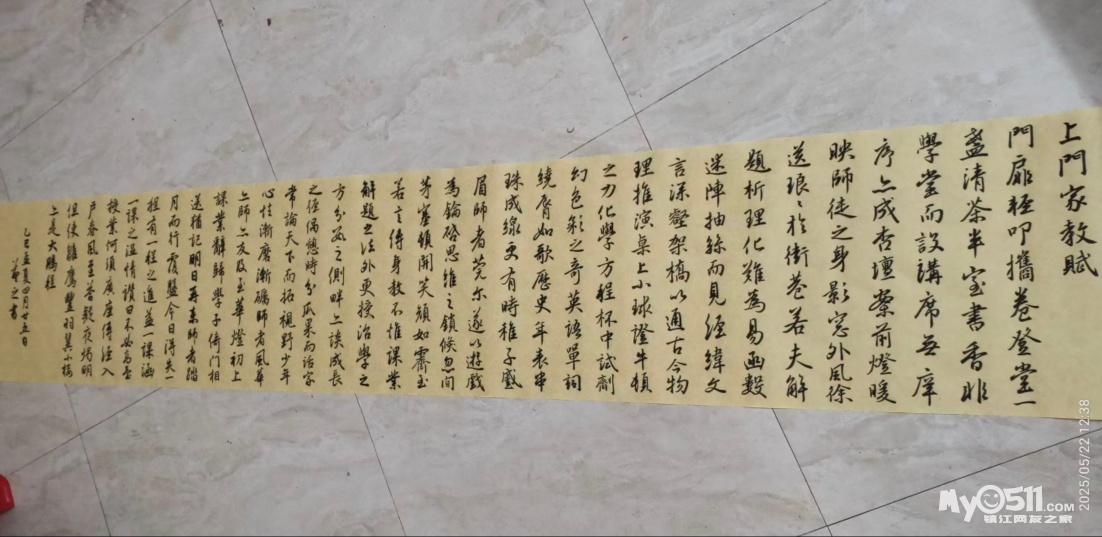 上門家教賦
門扉輕叩攜卷登堂一
盞清茶半室書香非
學堂而設講席無庠
序亦成杏壇案前燈暖
映師徒之身影窓外風徐
送琅〻於街巷若夫解
題析理化難為易函數
迷陣抽絲而見經緯文
言深壑架橋以通古今物
理推演桌上小球證牛頓
之力化學方程杯中試劑
幻色彩之奇英語單詞
繞脣如歌歷史年表串
珠成線更有時稚子蹙
眉師者莞尔遂以遊戲
為鑰啓思維之鎖倏忽間
茅塞頓開笑顏如霽玉
若言傳身教不惟課業
解題之法外更授治學之
方分秒之側畔上談成長
之徑偶憩時分瓜果而話家
常論天下而拓視野少年
心性漸磨漸礪師者風華
亦師亦友及至華燈初上
課業辭歸學子倚門相
送猶記明日再來師者踏
月而行覆盤今日得失一
程有一程之進益一課涵
一課之温情讚曰不必高臺
授業何須廣座傳經入
戶春風至答疑夜燭明
但使雛鷹豐羽翼小橋
上是大鵬程
乙巳孟夏四月廿五日
羲之書
2025/05/22 12:38
My0511.com
镇江网友之家